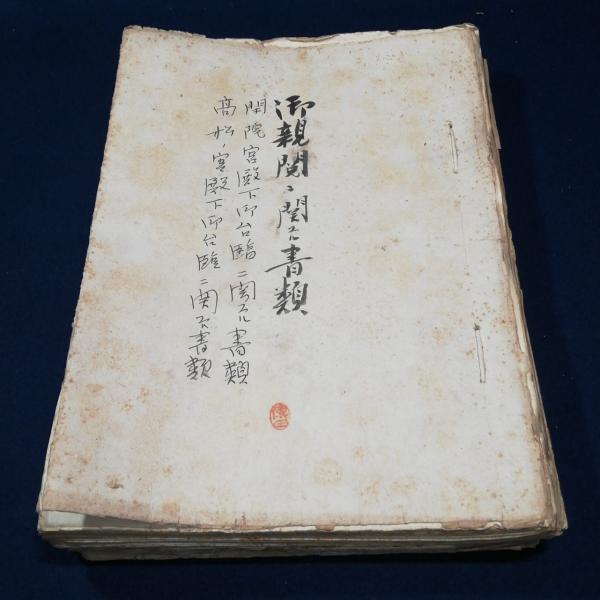 御親閲ニ関スル書類
閑院宮殿下御台臨ニ関スル書類
高松ノ宮殿下御台臨ニ関スル書類